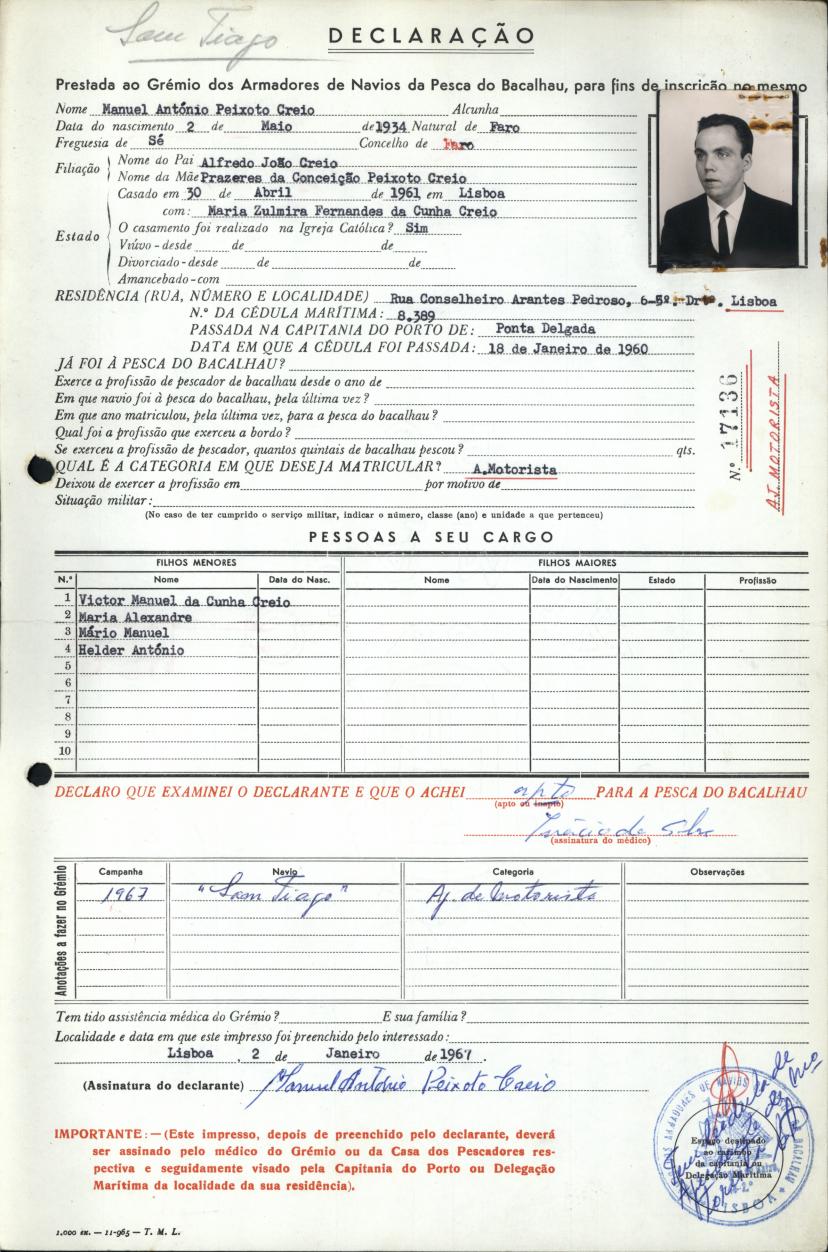 Sam Tiago
DECLARAÇÃO
Prestada ao Grémio dos Armadores de Navios da Pesca do Bacalhau, para fins de inscrição no mesmo
Nome Manuel António Peixoto Creio Alcunha
Data do nascimento 2 de Maio de 1934 Natural de Faro
Freguesia de Sé Concelho de Faro
Filiação
Nome do Pai Alfredo João Creio
Nome da Mãe Prazeres da Conceição Peixoto Creio
Estado
Casado em 30 de Abril de 1961 em Lisboa
com: Maria Zulmira Fernandes da Cunha Creio
O casamento foi realizado na Igreja Católica? Sim
Viúvo - desde de de
Divorciado - desde de de
Amancebado - com
RESIDÊNCIA (RUA, NÚMERO E LOCALIDADE) Rua Conselheiro Arantes Pedroso, 6-5º. Drtº. Lisboa
N.º DA CÉDULA MARÍTIMA: 8.389
PASSADA NA CAPITANIA DO PORTO DE: Ponta Delgada
DATA EM QUE A CÉDULA FOI PASSADA: 18 de Janeiro de 1960
JÁ FOI À PESCA DO BACALHAU?
Exerce a profissão de pescador de bacalhau desde o ano de
Em que navio foi à pesca do bacalhau, pela última vez?
Em que ano matriculou, pela última vez, para a pesca do bacalhau?
Qual foi a profissão que exerceu a bordo?
Se exerceu a profissão de pescador, quantos quintais de bacalhau pescou? qts.
QUAL É A CATEGORIA EM QUE DESEJA MATRICULAR? A.Motorista
Deixou de exercer a profissão em por motivo de
Situação militar:
(No caso de ter cumprido o serviço militar, indicar o número, classe (ano) e unidade a que pertenceu)
N.º 17136
AJ. MOTORISTA
PESSOAS A SEU CARGO
FILHOS MENORES FILHOS MAIORES
N.º Nome Data do Nasc. Nome Data do Nascimento Estado Profissão
1 Victor Manuel da Cunha Creio
2 Maria Alexandre
3 Mário Manuel
4 Helder António
5
6
7
8
9
10
DECLARO QUE EXAMINEI O DECLARANTE E QUE O ACHEI apto PARA A PESCA DO BACALHAU
(apto ou inapto)
Inácio da Silva
(assinatura do médico)
Anotações a fazer no Grémio
Campanha Navio Categoria Observações
1967 "Sam Tiago" Aj. de Motorista
Tem tido assistência médica do Grémio? E sua família?
Localidade e data em que este impresso foi preenchido pelo interessado:
Lisboa, 2 de Janeiro de 1967.
(Assinatura do declarante) Manuel António Peixoto Creio
IMPORTANTE: — (Este impresso, depois de preenchido pelo declarante, deverá
ser assinado pelo médico do Grémio ou da Casa dos Pescadores res-
pectiva e seguidamente visado pela Capitania do Porto ou Delegação
Marítima da localidade da sua residência).
Espaço destinado
ao carimbo
da capitania ou
Delegação Marítima
ARMADORES DE NAVIOS
BACALHAU
LISBOA
1.000 ex. — 11-965 — T. M. L.